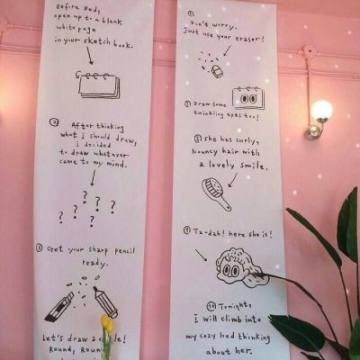 Before bed,
open up to a blank
white page
in your sketch book.
② After thinking
what I should draw,
i decided
to draw whatever
came to my mind.
? ? ? ? ? ? ?
③ Get your sharp pencil
ready.
Let's draw a circle!
Round, Round
Don't worry.
Just use your eraser!
Draw some
twinkling eyes too!
She has curly,
bouncy hair with
a lovely smile.
Ta-dah! here she is!
⑩ Tonight,
i will climb into
my cozy bed thinking
about her.